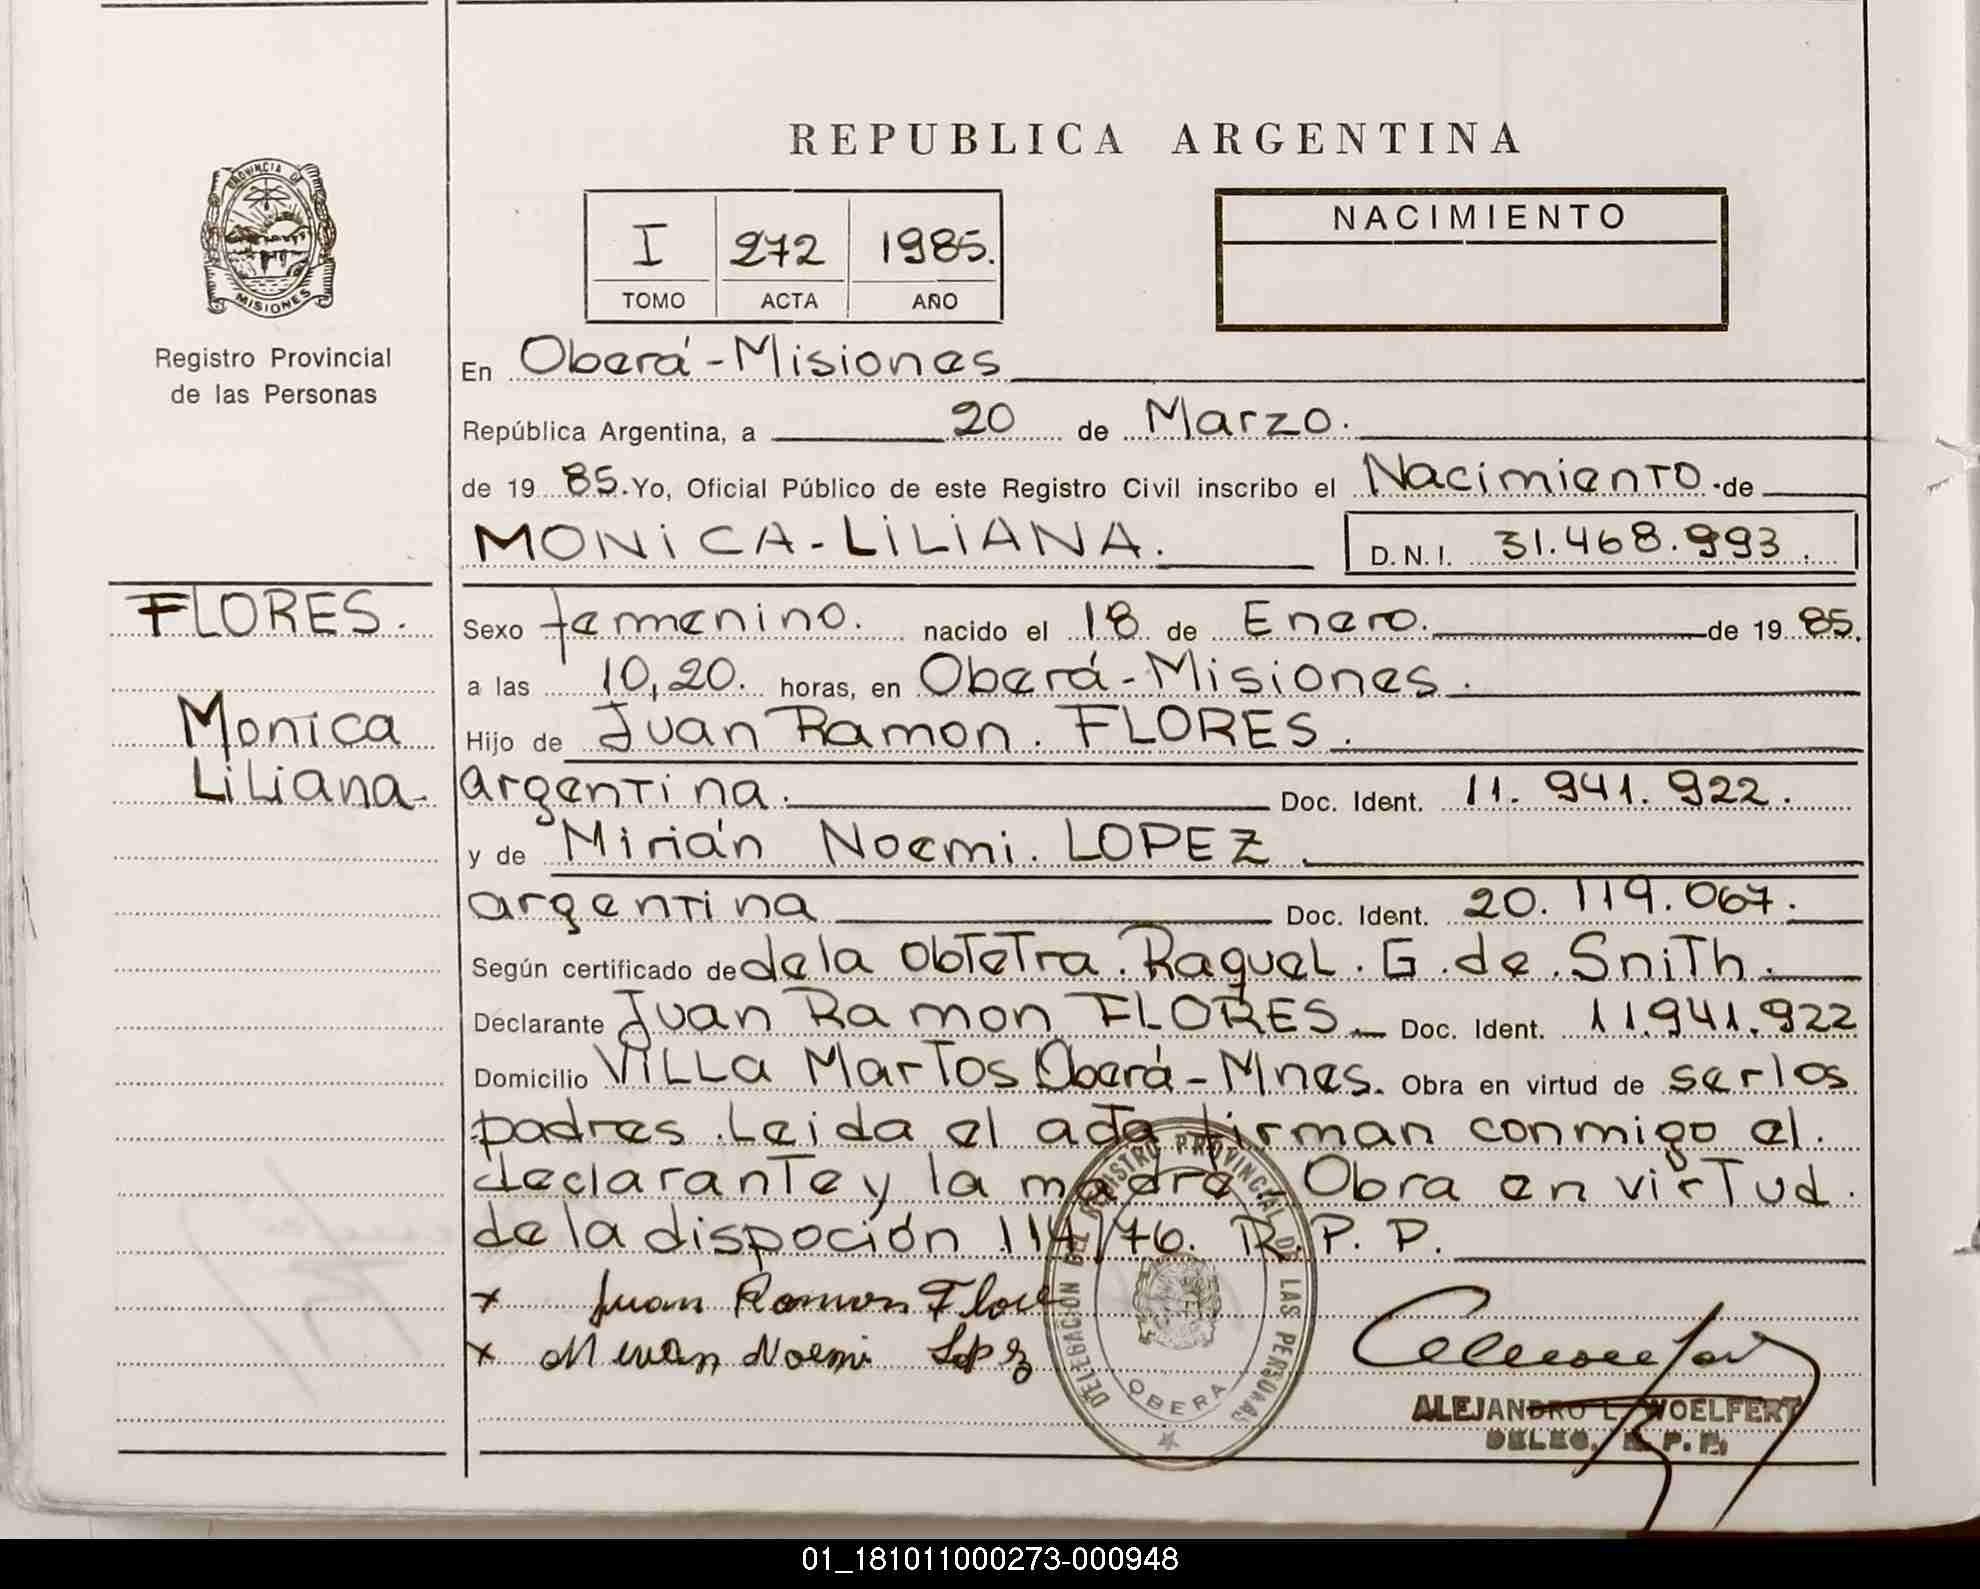 REPUBLICA ARGENTINA
PROVINCIA DE
MISIONES
Registro Provincial
de las Personas
I 272 1985.
TOMO ACTA AÑO
NACIMIENTO
En Oberá-Misiones
República Argentina, a 20 de Marzo.
de 19 85. Yo, Oficial Público de este Registro Civil inscribo el Nacimiento. de
MONiCA-LiLiANA. D.N.I. 31.468.993.
FLORES.
Monica
Liliana-
Sexo femenino. nacido el 18 de Enero. de 19 85.
a las 10,20. horas, en Oberá-Misiones.
Hijo de Juan Ramon. FLORES.
argentina. Doc. Ident. 11.941.922.
y de Mirián Noemi. LOPEZ
argentina Doc. Ident. 20.119.067.
Según certificado de de la Obtetra. Raquel. G. de. Snith.
Declarante Juan Ramon FLORES. Doc. Ident. 11.941.922
Domicilio Villa Martos Oberá-Mnes. Obra en virtud de ser los
padres. Leida el acta firman conmigo el.
declarante y la madre. Obra en virtud.
de la dispoción 114/76. R.P.P.
x Juan Ramon Flore
x Mirian Noemi Lopez
DELEGACIÓN DEL REGISTRO PROVINCIAL DE LAS PERSONAS
OBERA
ALEJANDRO L. WOELFERT
DELEG. R. P. P.
01_181011000273-000948